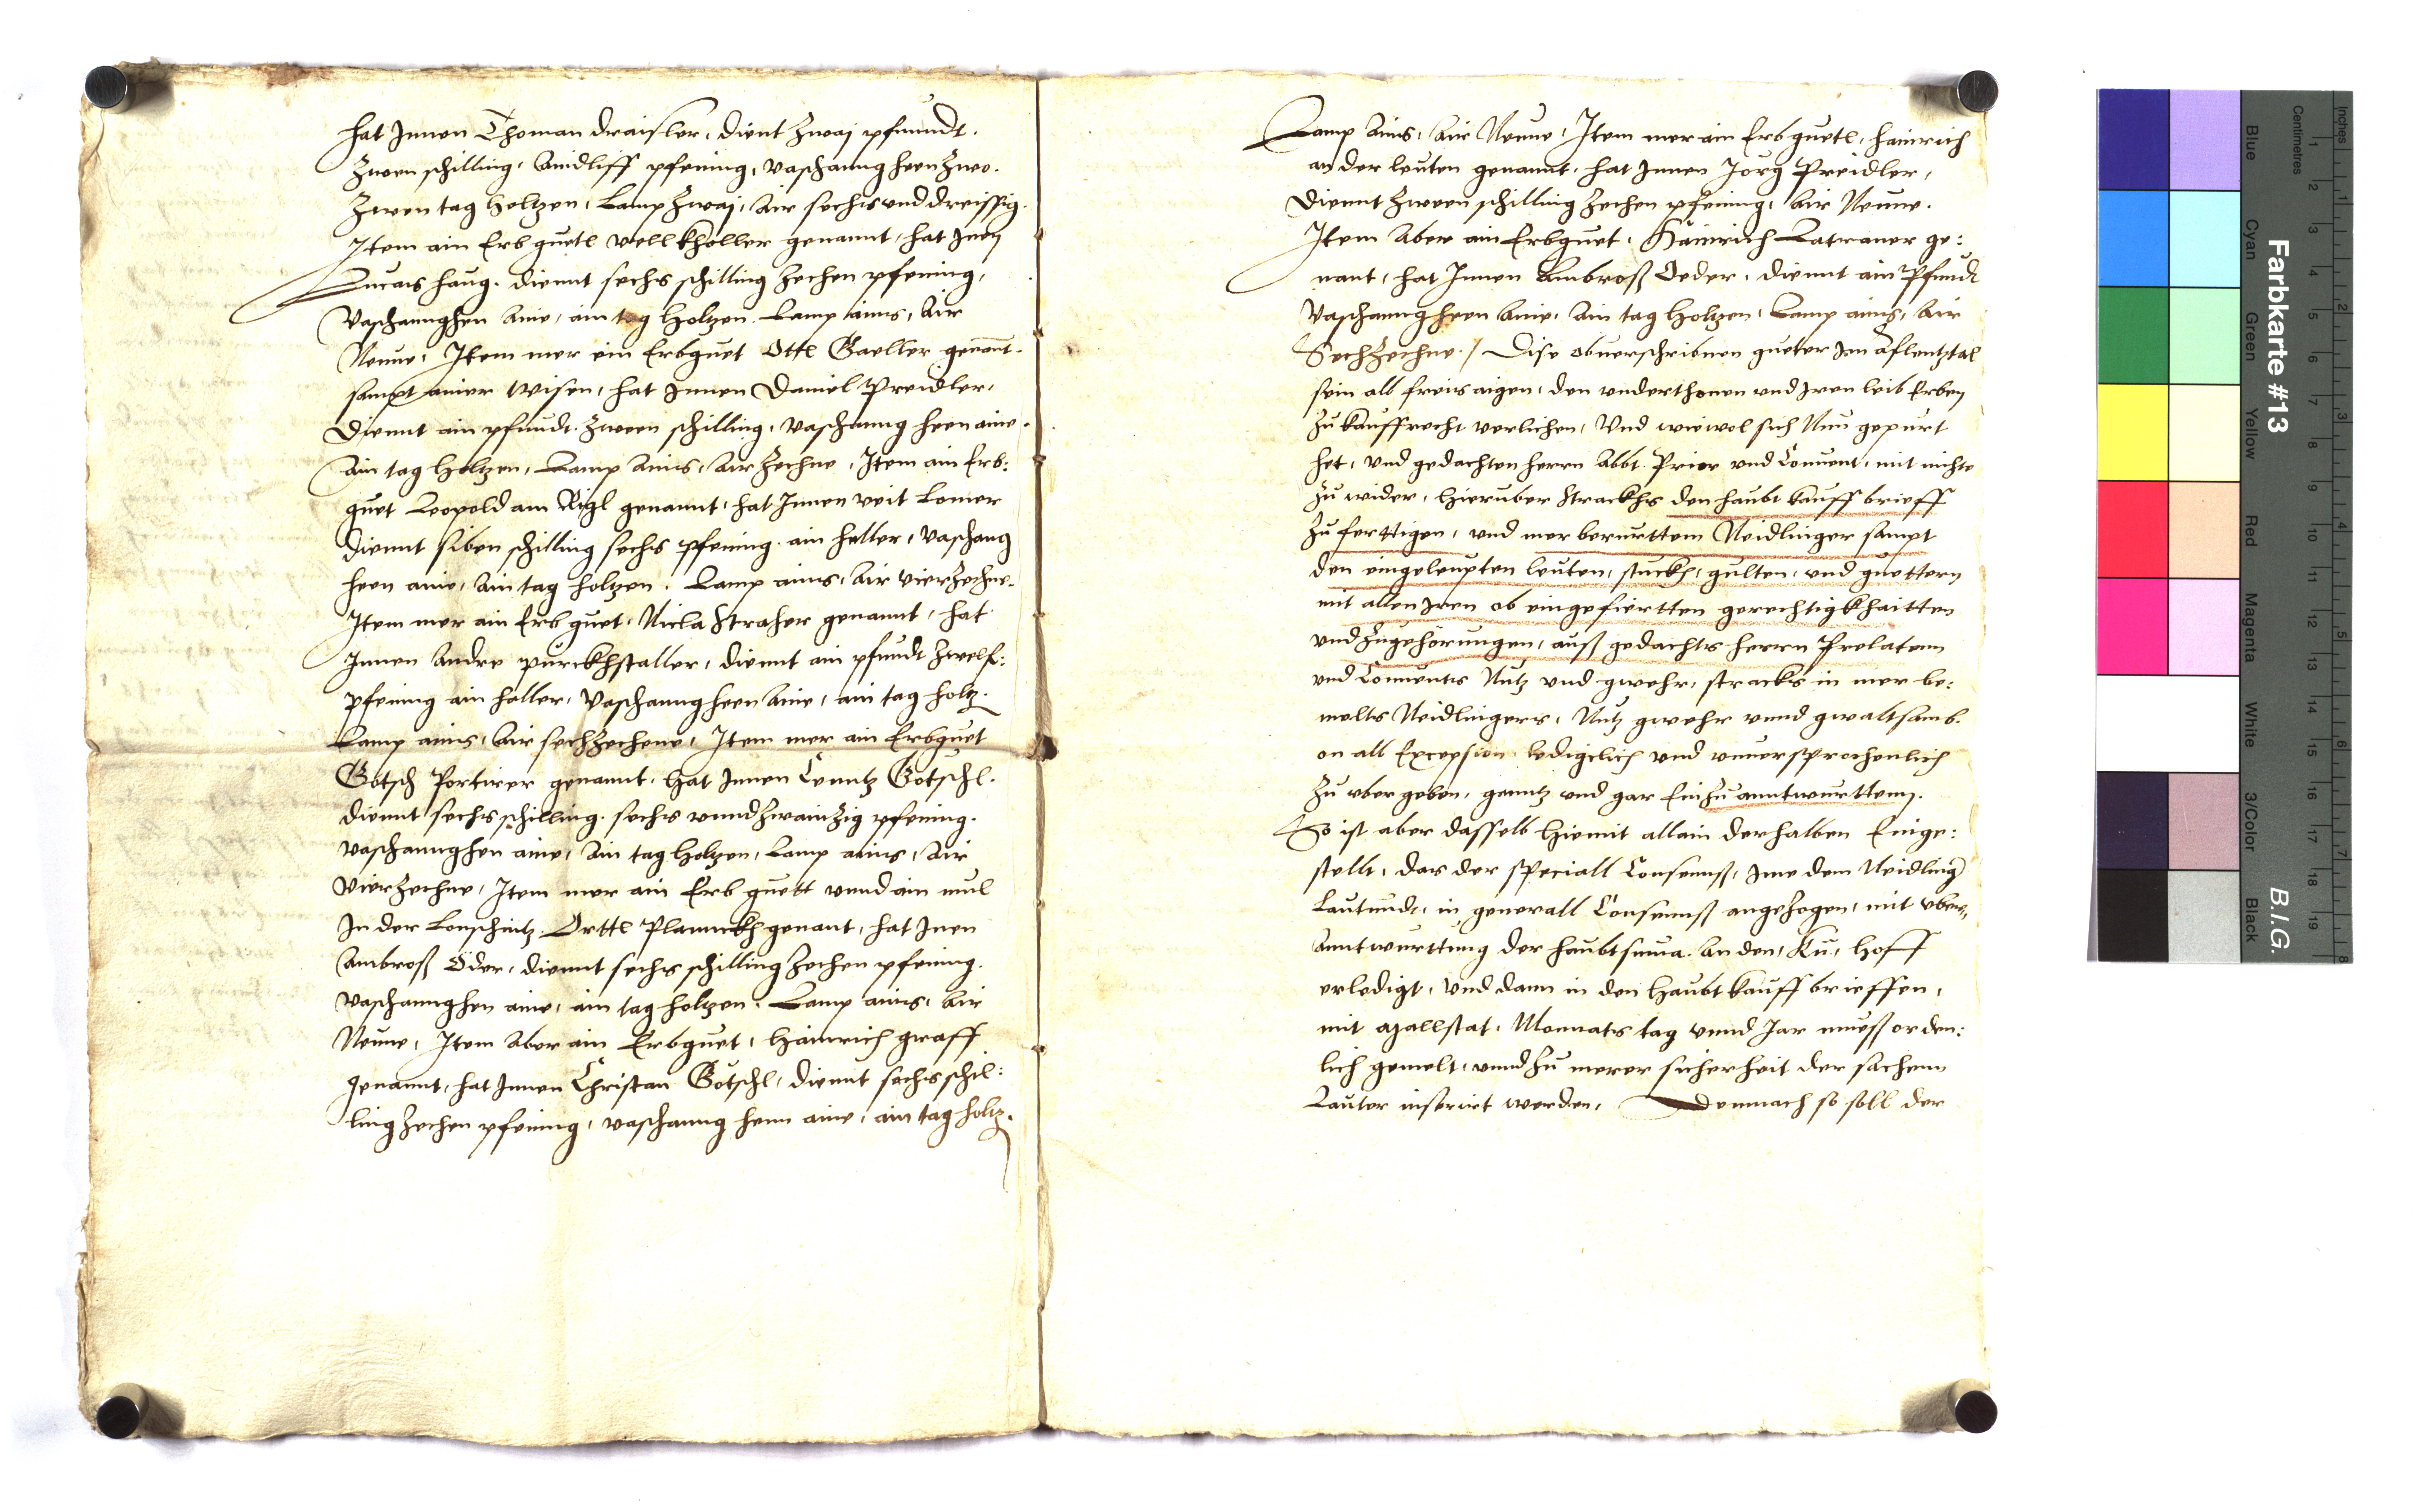 hat Innen Thoman draisler, dient zwaj pfunndt.
Zween schilling, Aindliff pfening, vaschanng heen zwo.
Zwen tag holtzen, Lamp zwaj, Air sechs und dreissig.
Item ain Erb guetl vellkholler genannt, hat Inen
Lucas haug. diennt sechs schilling zechen pfening,
Vaschannghen Aine, ain tag holtzen. Lamp ains, Air
Neune, Item mer ein Erbguet Ottl Gaeller genant.
sampt ainer wisen, hat Innen Daniel Preidler,
Diennt ain pfundt. zween schilling, Vaschanng heen aine.
Ain tag holtzen, Lamp Ains, Air zechne, Item ain Erb:
guet Leopold am Rigl genannt, hat Innen veit Lomer
diennt siben schilling sechs pfening. ain heller, Vaschang
heen aine, Ain tag holtzen. Lamp ains, Air vierzechne.
Item mer ain Erb guet, Nicla Straher genannt, hat
Innen Andre purckhstaller, diennt ain pfundt zwelf:
pfening ain haller, Vaschanng heen Aine, ain tag holtz.
Lamp ains, Air sechzechene, Item mer ain Erbguet
Götsch Portirer genannt, hat Innen Cunntz Götschl.
diennt sechs schilling. sechs unnd zwainzig pfening.
Vaschannghen aine, Ain tag holtzen, Lamp ains, Air
Vierzechne, Item mer ain Erb guett unnd ain mul
In der Lonschitz. Orttl Plannckh genant, hat Inen
Ambroß Öder, diennt sechs schilling zechen pfening.
Vaschannghen aine, ain tag holtzen. Lamp ains, Air
Neune, Item Aber ain Erbguet, Hainrich graff
genannt, hat Innen Christan Götschl, diennt sechs schil:
ling zechen pfening, vaschanng henn aine, ain tag holtz.
Lamp Ains, Air Neune, Item mer ain Erb guetl, Hainrich
an der leuten genannt, hat Innen Jörg Preidler,
Diennt zween schilling zechen pfening, Air Neune.
Item Aber ain Erbguet, Hainrich Latraner ge:
nant, hat Innen Ambroß Oeder, diennt ain Pfundt
Vaschanngheen Aine, Ain tag holtzen, Lamp ains, Air
Sechzechne. / Dise obverschribnen gueter Im Aflentztal
sein all freis aigen, den underthonen und Iren leib Erben
zu kauffrecht verlichen, Und wiewol sich Nun gepurt
het, und gedachten herrn Abbt. Prior und Convent, mit nichte
zu wider, hieruber Strackhs den haubt kauff brieff
zu ferttigen, und mer berurttem Neidlinger sampt
den eingeleupten leuten, stuckh, gulten, und guettern
mit allen Iren ob eingefiertten gerechtigkhaitten
und Zugehörungen, auß gedachts herrn Prelatenn
und Convents Nutz und gwehr, stracks in mer be:
melts Neidlingers, Nutz gwehr unnd gwaltsamb.
on all Excepsion ledigclich und unversprochenlich
zu uber geben, genntz und gar Ein zu anntwurttenn.
So ist aber dasselb hiemit allain derhalben Einge:
stellt, das der Speciall Consennß, Ime dem Neidling
Lautundt, in generall Consennß angezogen, mit uber,
Anntwurttung der haubtsuma. An den, Ku, hoff
erledigt, Und dann in den haubt kauff brieffen,
mit azallstat, Monnats tag unnd Jar mueß orden:
lich gemelt, unnd zu merer sicherheit der sachenn
Lauter inserirt werden, Demnach so soll der
Farbkarte #13
B.I.G.
Inches
Centimetres
Blue
Cyan
Green
Yellow
Red
Magenta
White
3/Color
Black